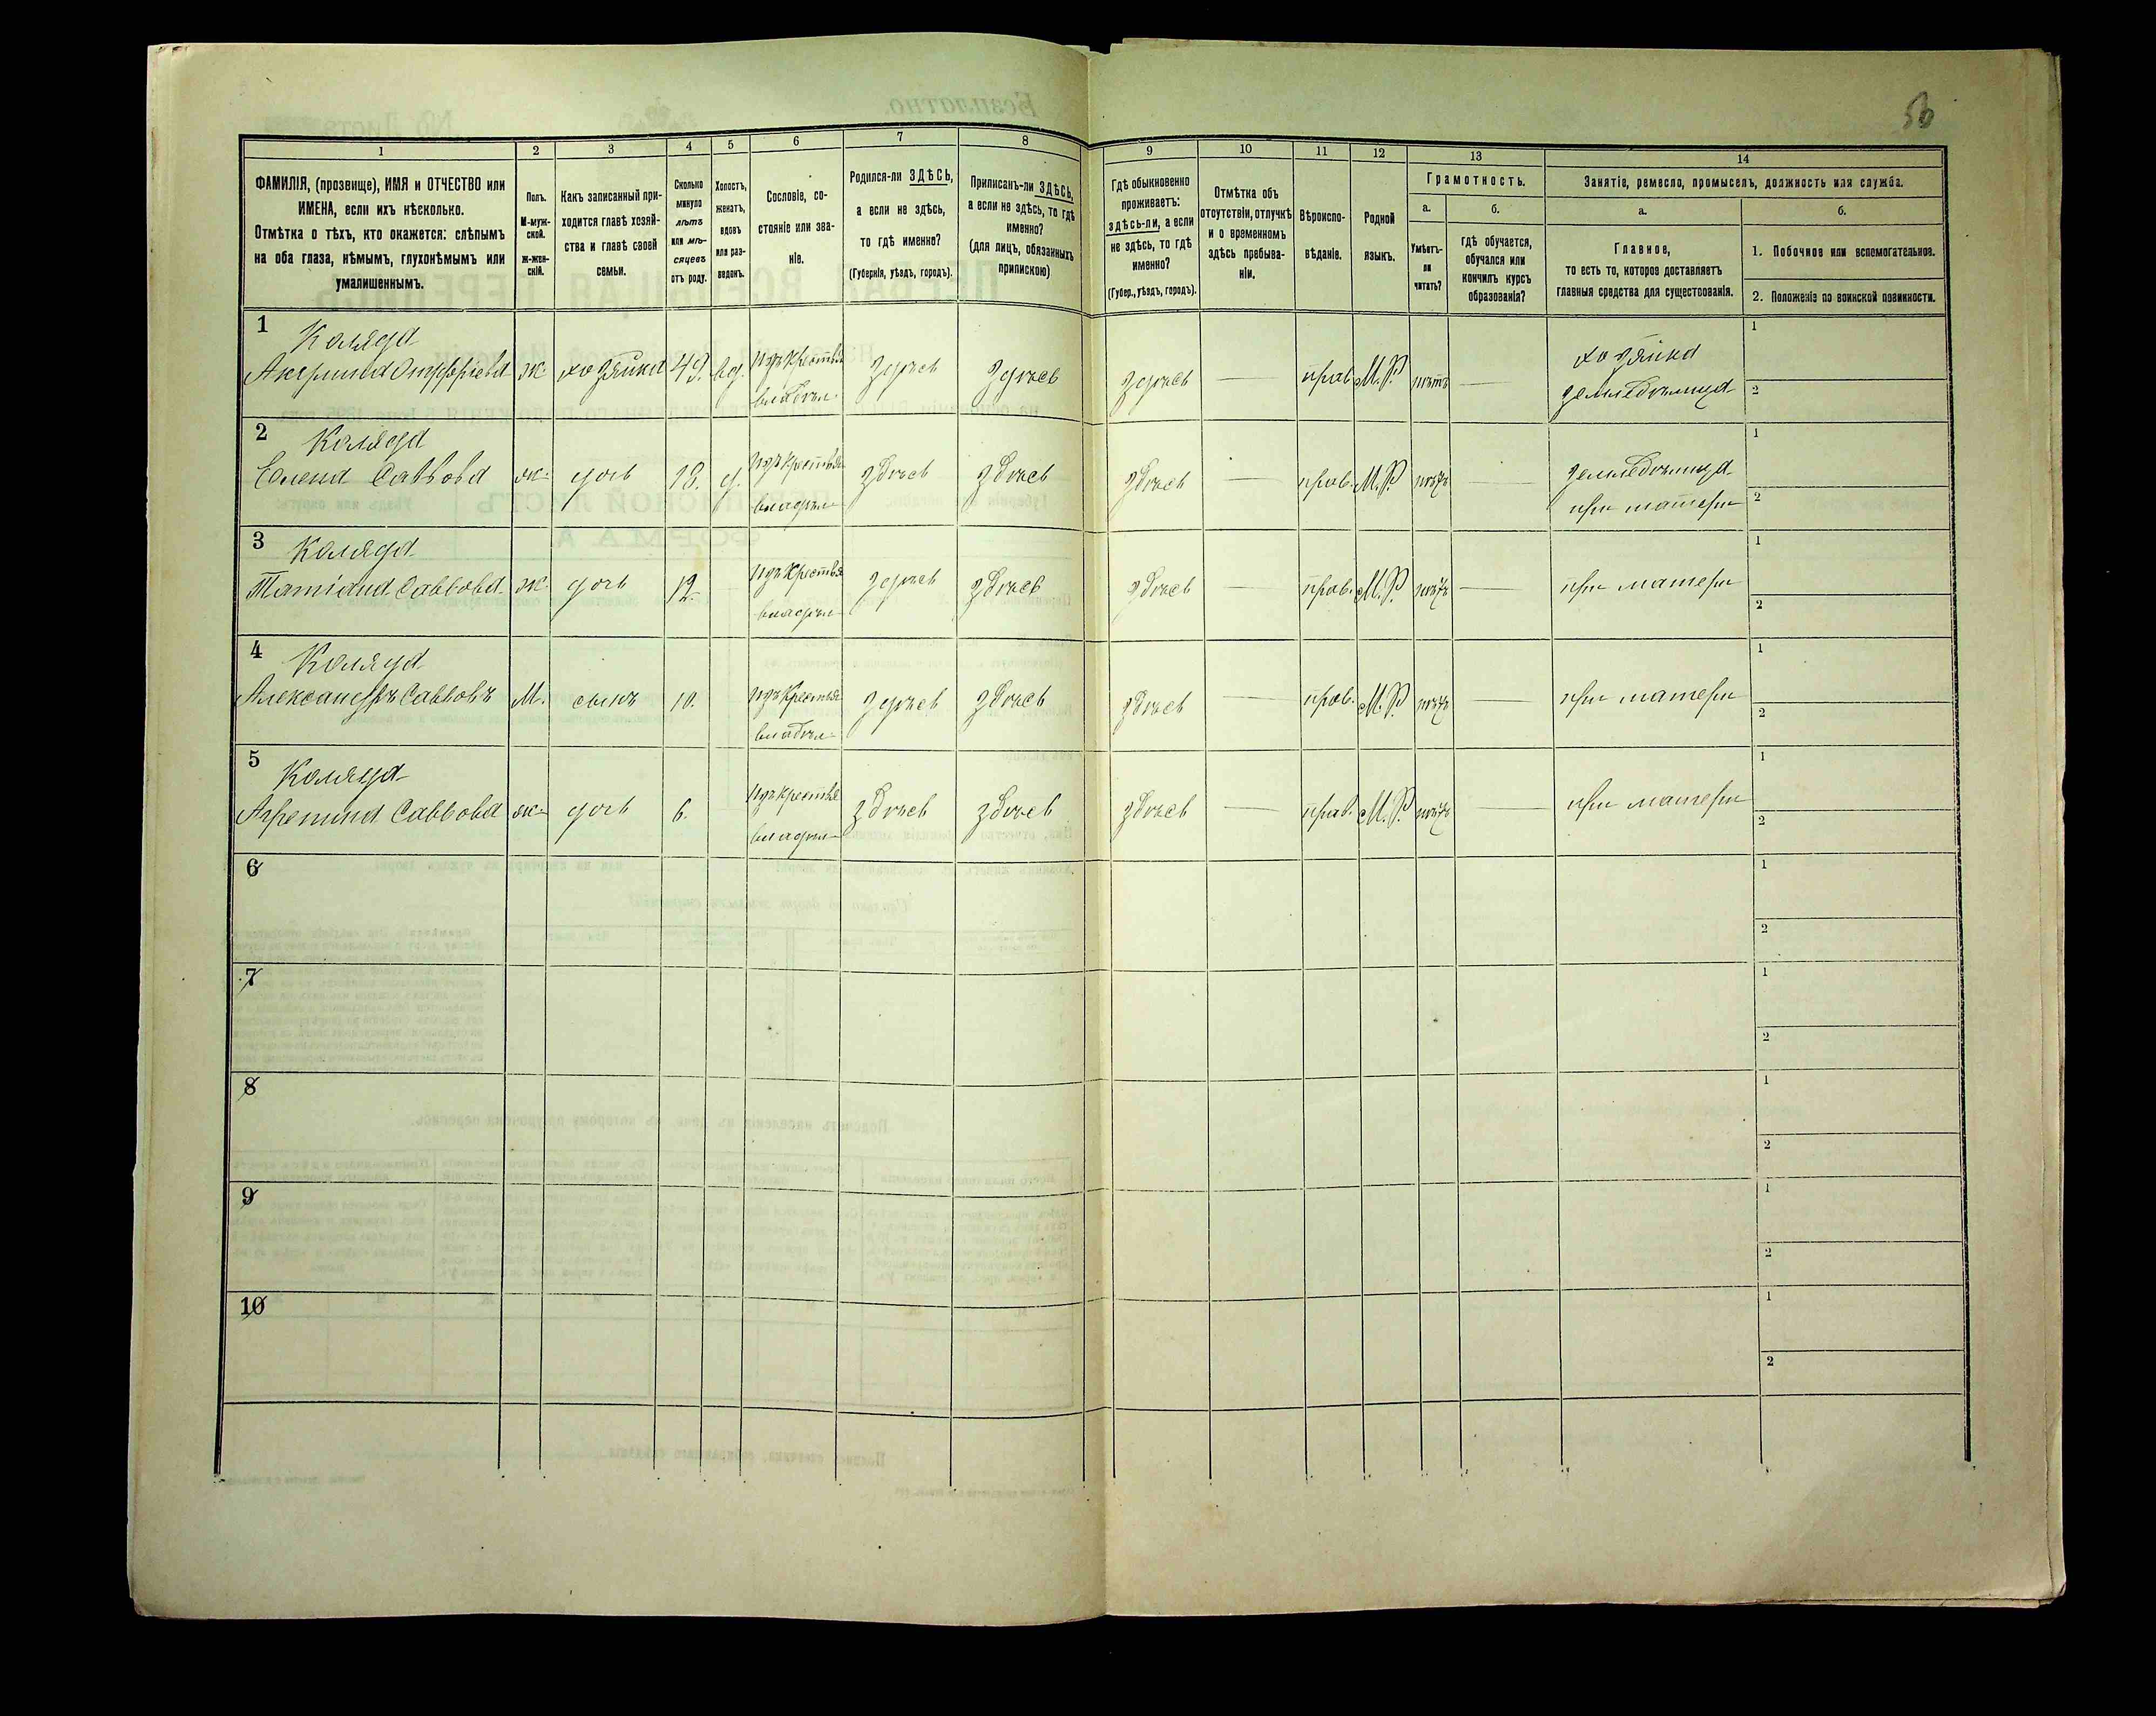 56
1
2
3
4
5
6
7
8
9
10
11
12
13
14
ФАМИЛІЯ, (прозвище), ИМЯ и ОТЧЕСТВО или
ИМЕНА, если ихъ нѣсколько.
Отмѣтка о тѣхъ, кто окажется: слѣпымъ
на оба глаза, нѣмымъ, глухонѣмымъ или
умалишеннымъ.
Полъ.
М-муж-
ской.
ж-жен-
скій.
Какъ записанный при-
ходится главѣ хозяй-
ства и главѣ своей
семьи.
Сколько
минуло
лѣтъ
или мѣ-
сяцевъ
отъ роду.
Холостъ,
женатъ,
вдовъ
или раз-
веденъ.
Сословіе, со-
стояніе или зва-
ніе.
Родился-ли ЗДѢСЬ,
а если не здѣсь,
то гдѣ именно?
(Губернія, уѣздъ, городъ).
Приписанъ-ли ЗДѢСЬ,
а если не здѣсь, то гдѣ
именно?
(для лицъ, обязанныхъ
припискою)
Гдѣ обыкновенно
проживаетъ:
здѣсь-ли, а если
не здѣсь, то гдѣ
именно?
(Губер., уѣздъ, городъ).
Отмѣтка объ
отсутствіи, отлучкѣ
и о временномъ
здѣсь пребыва-
ніи.
Вѣроиспо-
вѣданіе.
Родной
языкъ.
Грамотность.
а.
Умѣетъ-
ли
читать?
б.
гдѣ обучается,
обучался или
кончилъ курсъ
образованія?
Занятіе, ремесло, промыселъ, должность или служба.
а.
Главное,
то есть то, которое доставляетъ
главныя средства для существованія.
б.
1. Побочное или вспомогательное.
2. Положеніе по воинской повинности.
1
Коляда
Акулина Онуфріева ж. хозяйка 49. вд. изъ крестья здѣсь здѣсь здѣсь — прав. М.Р. нѣтъ —
владѣл.
хозяйка
земледѣлица
1
2
2
Коляда
Елена Саввова ж. дочь 18. д. изъ крестья здѣсь здѣсь здѣсь — прав. М.Р. нѣтъ —
владѣл.
земледѣлица
при матери
1
2
3
Коляда
Татіана Саввова ж. дочь 12. изъ крестья здѣсь здѣсь здѣсь — прав. М.Р. нѣтъ — при матери
владѣл.
1
2
4
Коляда
Александръ Саввовъ М. сынъ 10. изъ крестья здѣсь здѣсь здѣсь — прав. М.Р. нѣтъ — при матери
владѣл.
1
2
5
Коляда
Агрепина Саввова ж. дочь 6. изъ крестья здѣсь здѣсь здѣсь — прав. М.Р. нѣтъ — при матери
владѣл.
1
2
6
1
2
7
1
2
8
1
2
9
1
2
10
1
2